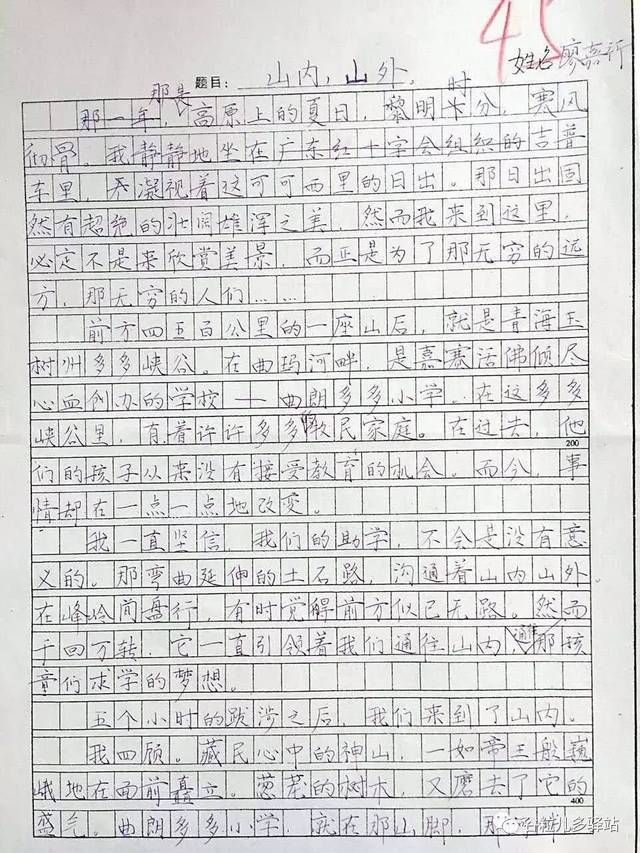 45
姓名 廖嘉行
题目： 山内，山外。
那是 时
那一年，高原上的夏日，黎明十分，寒风
彻骨。我静静地坐在广东红十字会组织的吉普
车里，凝视着这可可西里的日出。那日出固
然有超绝的壮阔雄浑之美，然而我来到这里，
必定不是来欣赏美景，而正是为了那无穷的远
方，那无穷的人们……
前方四五百公里的一座山后，就是青海玉
树州多多峡谷。在曲玛河畔，是嘉赛活佛倾尽
心血创办的学校——曲朗多多小学。在这多多
峡谷里，有着许许多多牧民家庭。在过去，他
200
们的孩子从来没有接受教育的机会。而今，事
情却在一点一点地改变。
我一直坚信，我们的助学，不会是没有意
义的。那弯曲延伸的土石路，沟通着山内山外
在峰峦间盘行，有时觉得前方似已无路。然而
千回万转，它一直引领着我们通往山内，通往那孩
童们求学的梦想。
五个小时的跋涉之后，我们来到了山内。
我四顾。藏民心中的神山，一如帝王般巍
峨地在面前矗立。葱茏的树木，又磨去了它的
400
盛气。曲朗多多小学，就在那山脚，那
多驿站